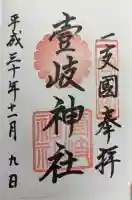 一支國奉拝
壹岐神社
平成三十年十一月九日